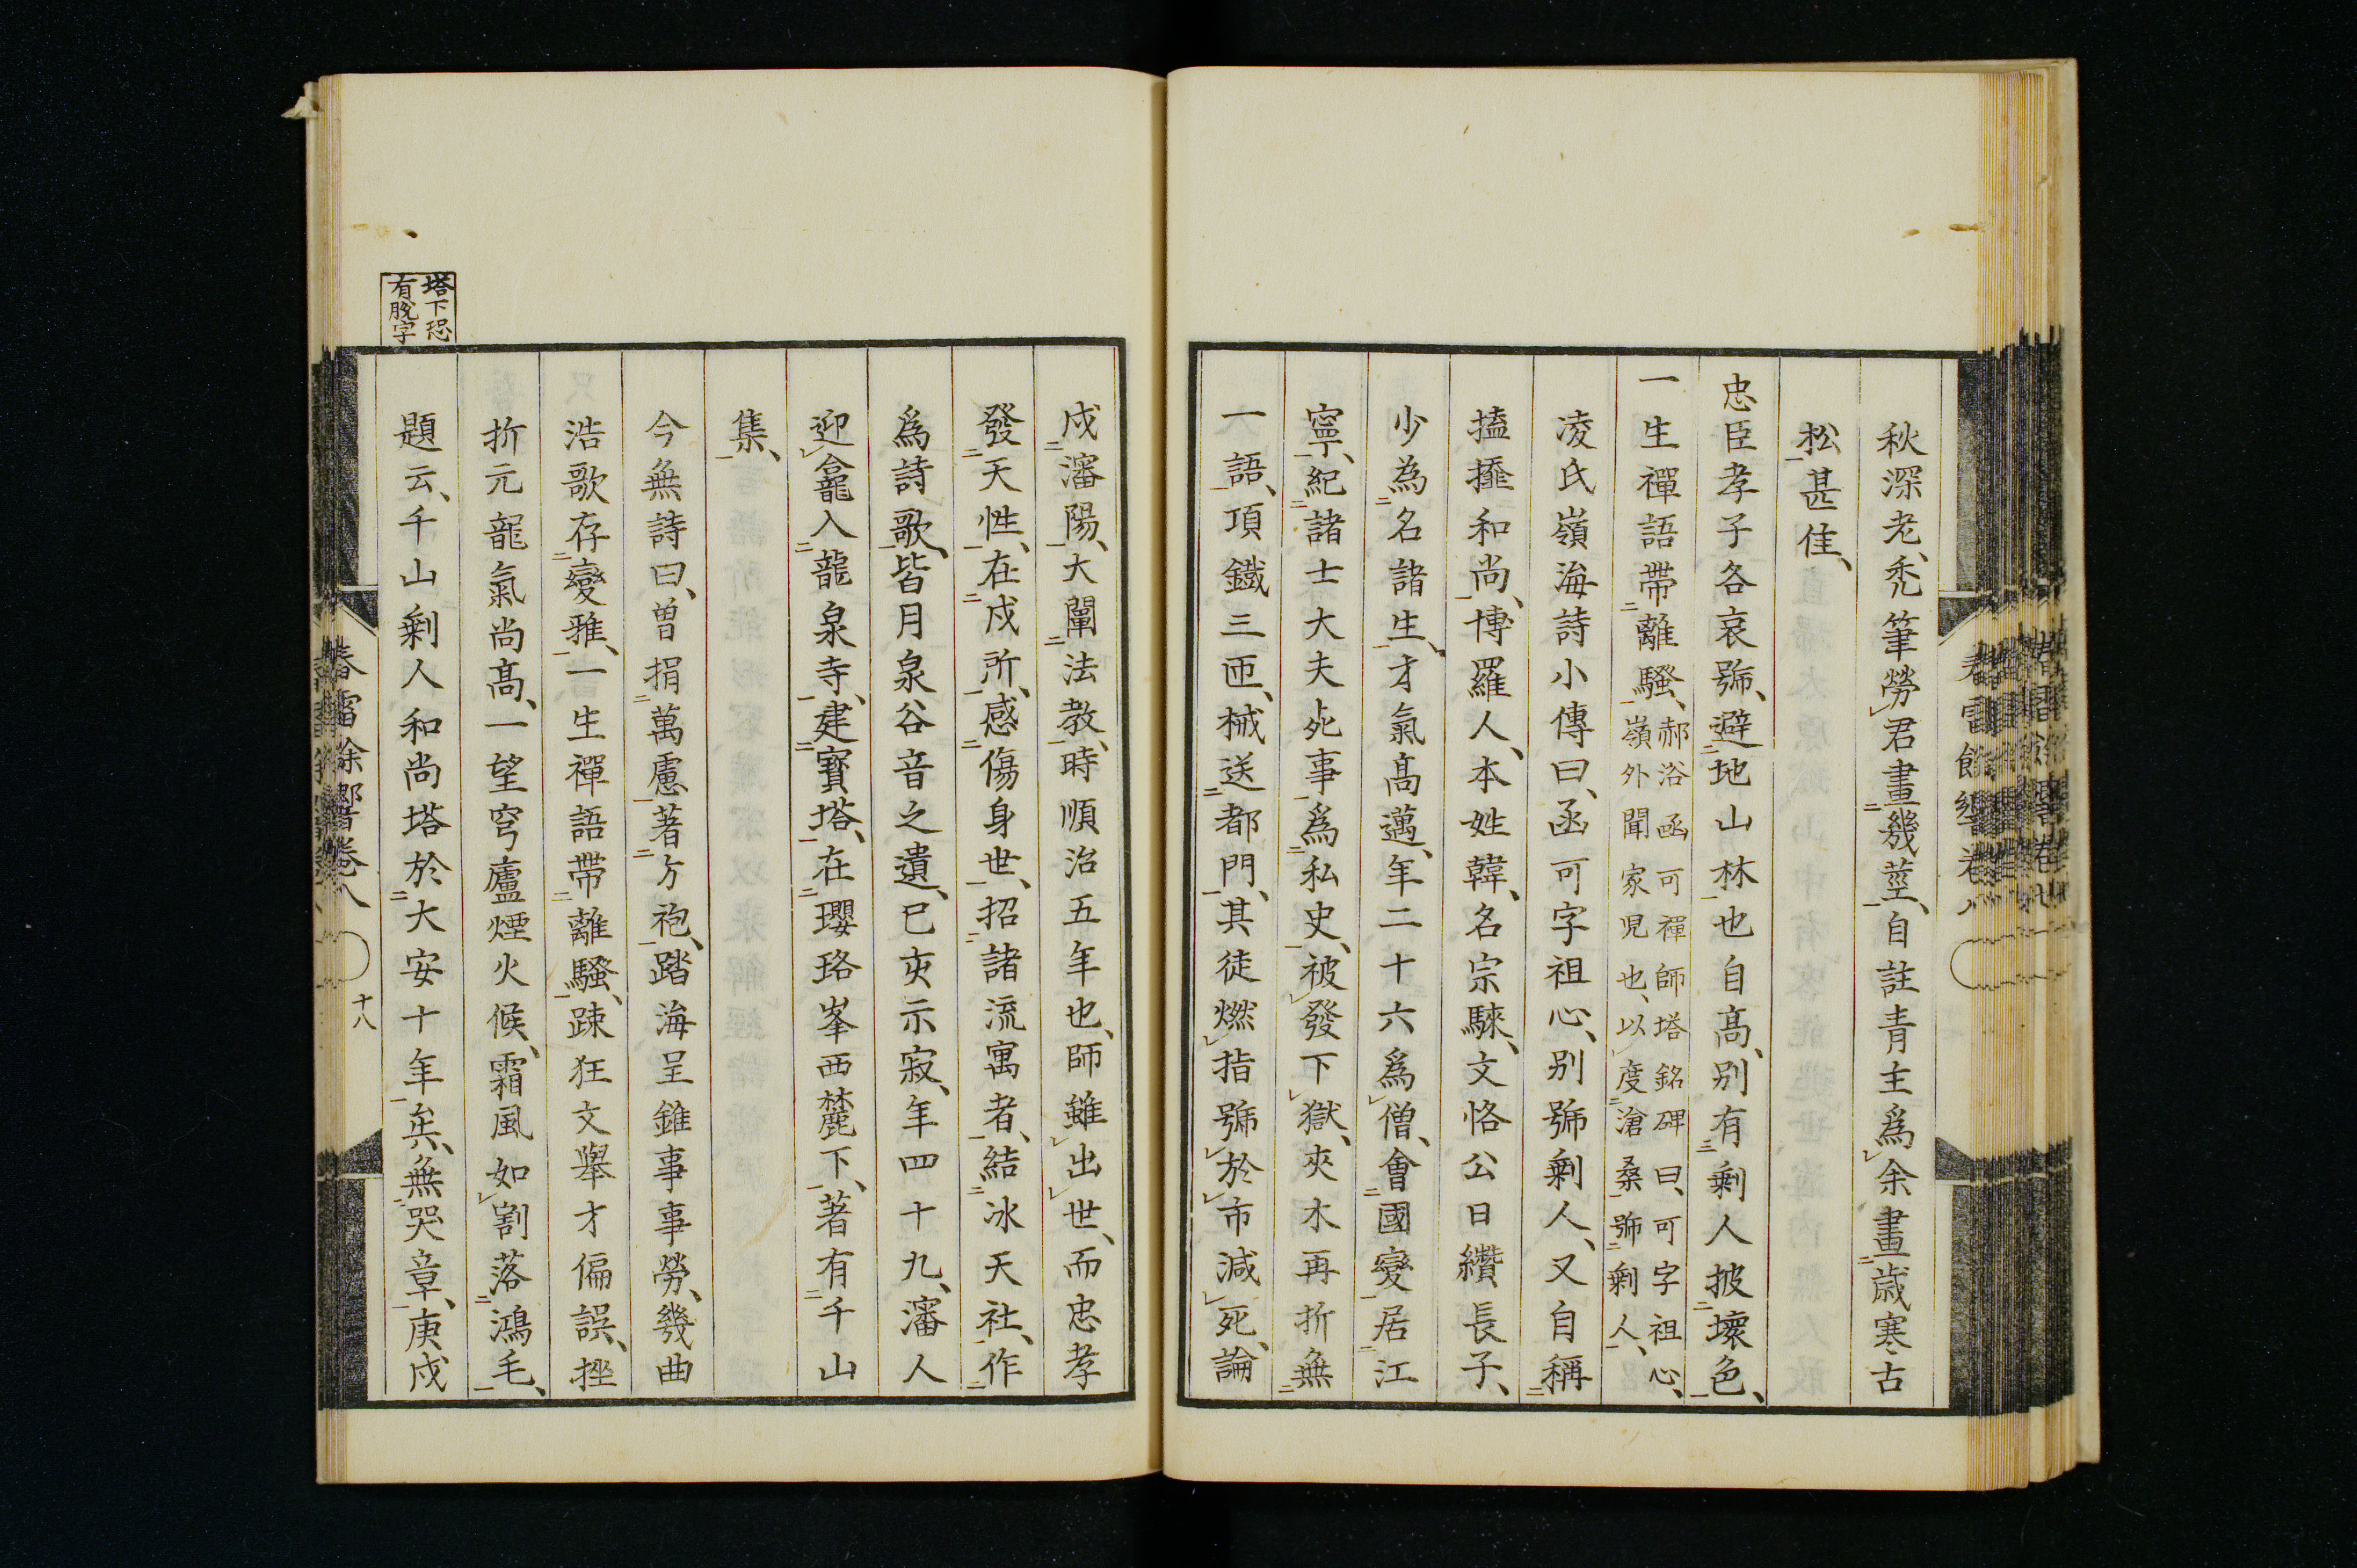 秋深老、禿筆勞㆑君畫㆓幾莖㆒、自註青主爲㆑余畫㆓歲寒古
松㆒甚佳、
忠臣孝子各哀號、避㆓地山林㆒也自高、別有㆔剩人披㆓壞色㆒、
一生禪語帶㆓離騷㆒、郝浴函可禪師塔銘碑曰、可字祖心、
嶺外聞家児也、以㆑度㆓滄桑㆒號㆓剩人㆒、
凌氏嶺海詩小傳曰、函可字祖心、別號剩人、又自稱㆓
搕𢶍和尚㆒、博羅人、本姓韓、名宗騋、文恪公日纘長子、
少為㆓名諸生㆒、才氣高邁、年二十六爲㆑僧、會㆓國變㆒居㆓江
寧㆒、紀㆓諸士大夫死事㆒爲㆓私史㆒、被㆑發下㆑獄、夾木再折無㆓
一語㆒、項鐵三匝、械送㆓都門㆒、其徒燃㆑指號㆑於㆑市減㆑死、論
戍㆓瀋陽㆒、大闡㆓法教㆒、時順治五年也、師雖㆑出㆑世、而忠孝
發㆓天性㆒、在㆓戍所㆒、感㆓傷身世㆒、招㆓諸流寓者㆒、結㆓冰天社㆒、作㆓
爲詩歌㆒、皆月泉谷音之遺、已亥示寂、年四十九、瀋人
迎㆑龕入㆓龍泉寺㆒、建㆓寶塔㆒、在㆓瓔珞峯西麓下㆒、著有㆓千山
集㆒、
今無詩曰、曽捐㆓萬慮㆒著㆓方袍㆒、踏海呈錐事事勞、幾曲
浩歌存㆓變雅㆒、一生禪語帶㆓離騷㆒、疎狂文擧才偏誤、挫
折元龍氣尚高、一望穹廬煙火候、霜風如㆑割落㆓鴻毛㆒、
塔下恐
有脫字
題云、千山剩人和尚塔於㆓大安十年㆒矣、無㆓哭章㆒、庚戌
春雷餘響卷八
十八